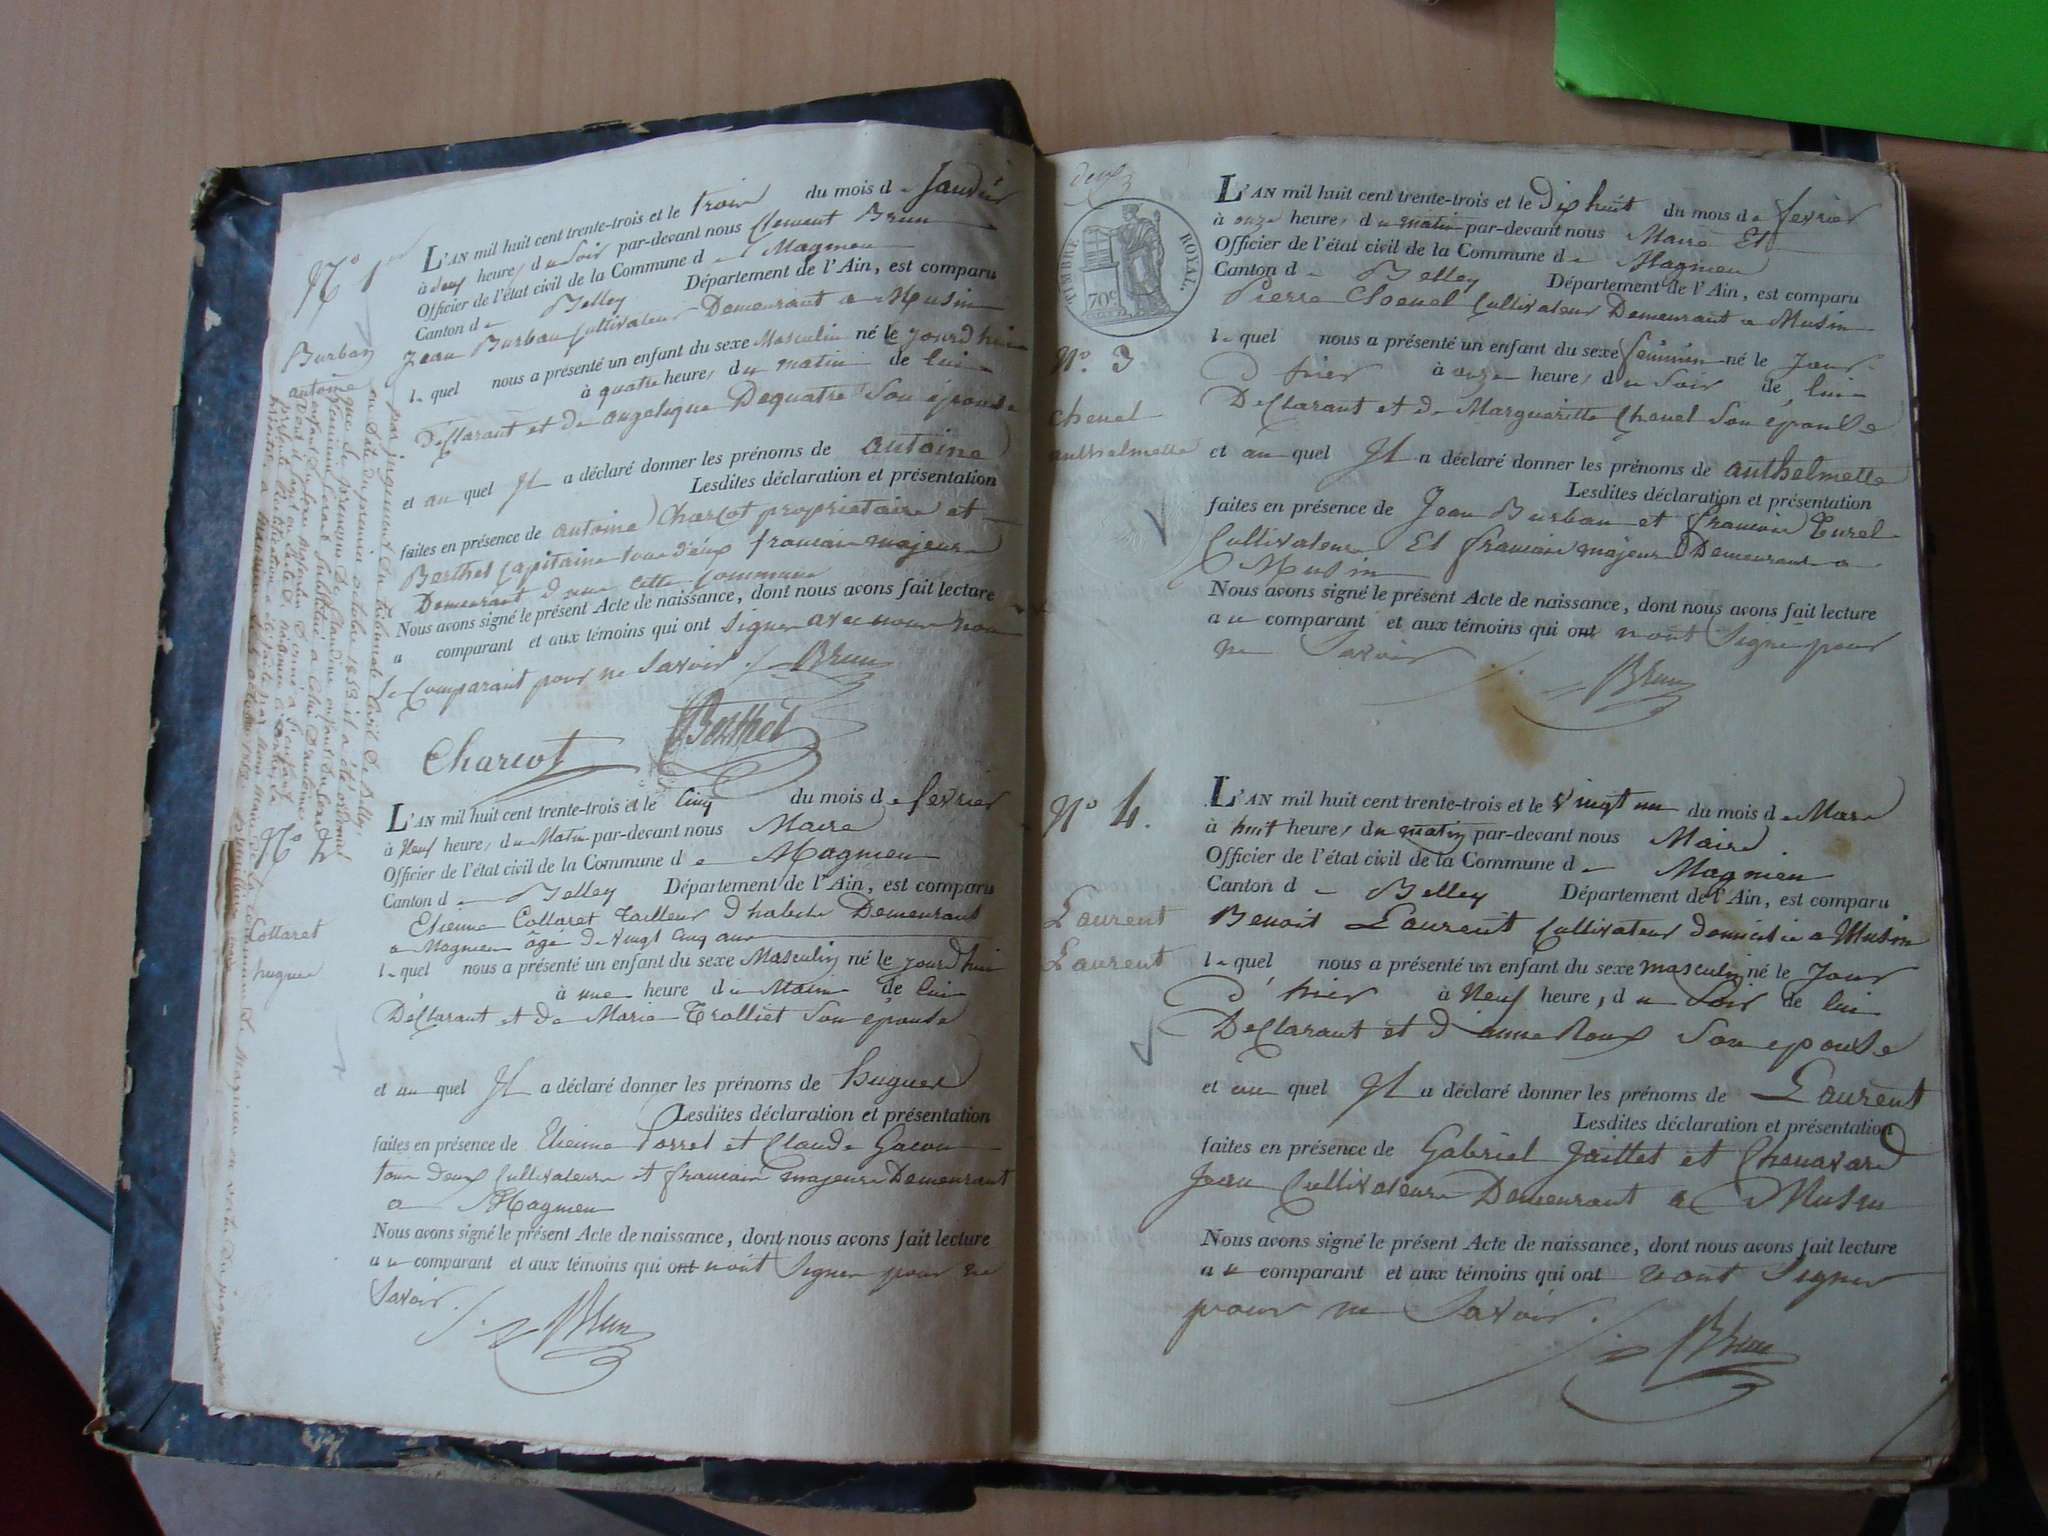 N.° 1er
Burban
antoine
L'AN mil huit cent trente-trois et le trois du mois de Janvier
à neuf heures du Soir par-devant nous Clement Brun
Officier de l'état civil de la Commune de Magnieu
Canton de Belley Département de l'Ain, est comparu
Jean Burban Cultivateur Demeurant a Musin
lequel nous a présenté un enfant du sexe Masculin né le jourd'hui
à quatre heures du matin de lui
Déclarant et de angelique Dequatre Son épouse
et au quel Il a déclaré donner les prénoms de antoine
Lesdites déclaration et présentation
faites en présence de antoine Charcot propriétaire et
Berthet Capitaine tous d'eux francais majeurs
Demeurant dans cette Commune
Nous avons signé le présent Acte de naissance, dont nous avons fait lecture
a comparant et aux témoins qui ont Signer avec nous non
le Comparant pour ne Savoir. Brun
Charcot Berthet
par jugement du tribunal Civil de Belley
N.° 2
Collaret
hugues
L'AN mil huit cent trente-trois et le Cinq du mois de fevrier
à Neuf heures du Matin par-devant nous Maire
Officier de l'état civil de la Commune de Magnieu
Canton de Belley Département de l'Ain, est comparu
Etienne Collaret tailleur d'habits Demeurant
a Magnieu âgé de vingt Cinq ans
lequel nous a présenté un enfant du sexe Masculin né le jourd'hui
à une heure du Matin de lui
Déclarant et de Marie Trolliet Son épouse
et au quel Il a déclaré donner les prénoms de hugues
Lesdites déclaration et présentation
faites en présence de Etienne Porret et Claude Gacon
tous deux Cultivateurs et francais majeurs Demeurant
a Magnieu
Nous avons signé le présent Acte de naissance, dont nous avons fait lecture
au comparant et aux témoins qui ont n'ont Signer pour ne
Savoir.
Brun
deux
TIMBRE ROYAL.
70c
N.° 3
Chenel
anthelmette
L'AN mil huit cent trente-trois et le Dix huit du mois de fevrier
à onze heures du matin par-devant nous Maire Et
Officier de l'état civil de la Commune de Magnieu
Canton de Belley Département de l'Ain, est comparu
Pierre Chenel Cultivateur Demeurant a Musin
lequel nous a présenté un enfant du sexe féminin né le Jour
D'hier à onze heures du Soir de lui
Déclarant et de Margueritte Chenel Son épouse
et au quel Il a déclaré donner les prénoms de anthelmette
Lesdites déclaration et présentation
faites en présence de Jean Burban et francois Curel
Cultivateurs Et francais majeurs Demeurant a
Musin
Nous avons signé le présent Acte de naissance, dont nous avons fait lecture
au comparant et aux témoins qui ont n'ont Signé pour
ne Savoir
Brun
N.° 4.
Laurent
Laurent
L'AN mil huit cent trente-trois et le vingt un du mois de Mars
à huit heures du matin par-devant nous Maire
Officier de l'état civil de la Commune de Magnieu
Canton de Belley Département de l'Ain, est comparu
Benoit Laurent Cultivateur domicilié a Musin
lequel nous a présenté un enfant du sexe masculin né le Jour
D'hier à Neuf heures, du Soir de lui
Déclarant et d'anne Roux Son epouse
et au quel Il a déclaré donner les prénoms de Laurent
Lesdites déclaration et présentation
faites en présence de Gabriel Jaillet et Chenavard
Jean Cultivateurs Demeurant a Musin
Nous avons signé le présent Acte de naissance, dont nous avons fait lecture
au comparant et aux témoins qui ont n'ont Signer
pour ne Savoir.
Brun